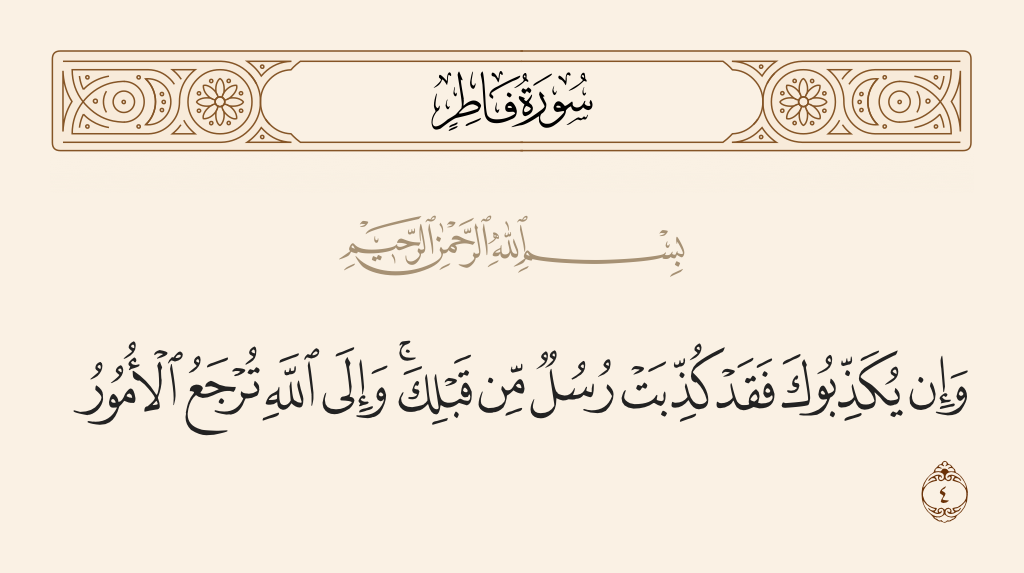 سُورَةُ فَاطِرٍ
بِسْمِ ٱللَّهِ ٱلرَّحْمَٰنِ ٱلرَّحِيمِ
وَإِن يُكَذِّبُوكَ فَقَدْ كُذِّبَتْ رُسُلٌ مِّن قَبْلِكَ ۚ وَإِلَى ٱللَّهِ تُرْجَعُ ٱلْأُمُورُ
٤